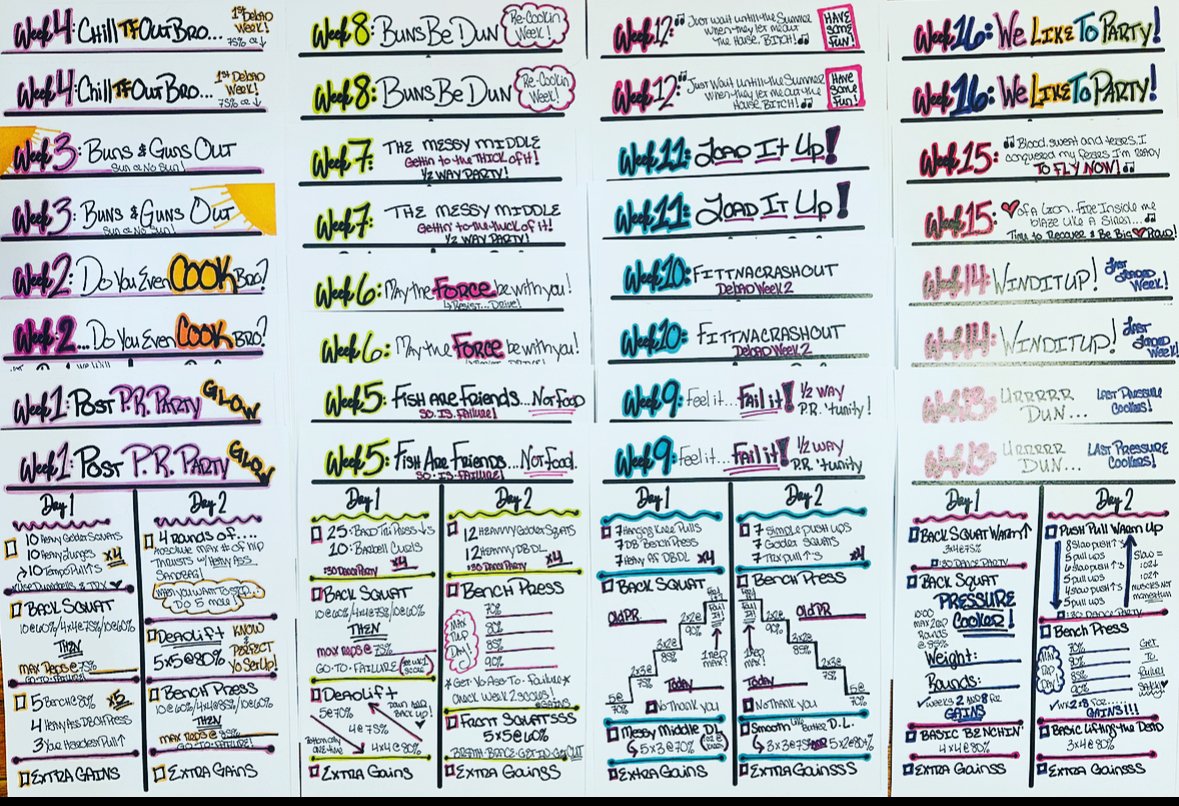 Week 4: Chill TF Out Bro... 1st Deload Week! 75% or ↓
Week 4: Chill TF Out Bro... 1st Deload Week! 75% or ↓
Week 3: Buns & Guns Out
Sun or No Sun!
Week 3: Buns & Guns Out
Sun or No Sun!
Week 2: Do You Even COOK Bro?
Week 2... Do You Even COOK Bro?
Week 1: Post P.R. Party GLOW
Week 1: Post P.R. Party GLOW
Day 1
10 Heavy Goblet Squats
10 Heavy Lunges x4
→ 10 Tempo Pull ↑s
Use Dumbbells & TRX
Back Squat
10@60%/4x4@75%/10@60%
THEN
max Reps @ 75%
Go-To-Failure!
5 Bench@80% x5
4 Heavy Ass DB Chest Press
3 Your Hardest Pull ↑
Extra Gains
Day 2
4 Rounds of...
Absolute max # of hip
Thrusts w/ Heavy Ass
Sandbag!
When you want to stop
Do 5 more!
Deadlift
5x5@80%
Know
Perfect
Yo Set Up!
Bench Press
10@60%/4x4@85%/10@60%
THEN
max Reps @ 85%
Go-To-Failure!
Extra Gains
Week 8: Buns Be Dun Re-Cookin Week!
Week 8: Buns Be Dun Re-Cookin Week!
Week 7: THE MESSY MIDDLE
Gettin to the THICK of it!
1/2 WAY PARTY!
Week 7: THE MESSY MIDDLE
Gettin' to the thick of it!
1/2 WAY PARTY!
Week 6: May the Force be with you!
Week 6: May the Force be with you!
Week 5: Fish Are Friends... Not Food
SO. IS. Failure!
Week 5: Fish Are Friends... Not Food.
SO. IS. FAILURE!
Day 1
25 Band Tri Press ↓s
10 Barbell Curls
:30 Dance Party x4
Back Squat
10@60%/4x4@75%/10@60%
THEN
max reps @ 75%
GO-TO-FAILURE
Deadlift
5@70%
4@75%
4x4@80%
Down and Back Up!
Extra Gains
Day 2
12 Heavyy Goblet Squats
12 Heavyy DB DL
:30 Dance Party x4
Bench Press
MAX REP DAY!
70%
80%
85%
90%
*Get Yo Ass To Failure*
Check Week 2 Scores!
Front Squatsss
5x5@60%
Breath-Brace-Get Low-Get Out
Extra Gainss
Week 12: Just wait until the Summer
when they let me out
The House, BITCH!
HAVE some FUN!
Week 12 Just Wait Until the Summer
when they let me out the
House, BITCH!
HAVE some FUN!
Week 11: Load It Up!
Week 11: Load It Up!
Week 10: FITTNACRASHOUT
Deload Week 2
Week 10: FITTNACRASHOUT
Deload Week 2
Week 9: Feel it... Fail it! 1/2 WAY P.R. 'tunity!
Week 9: Feel it... Fail it! 1/2 WAY P.R. 'tunity
Day 1
7 Hanging Knee Pulls
7 DB Bench Press
7 Heavy AF DBDL x4
Back Squat
Old PR
2x2@
90%
2x3@
85%
2x3@
75%
5@
70%
1 Rep max!
Today
No Thank you
Messy Middle DL
5x3@70%
Extra Gains
Day 2
7 Simple push ups
7 Goblet Squats
7 TRX pull ↑s x4
Bench Press
Old PR
2x2@
90%
3x2@
85%
2x3@
75%
5@
70%
1 Rep max!
Today
No Thank you
Smooth Like Butter D.L.
Extra Gainsss
Week 16: We Like To Party!
Week 16: We Like To Party!
Week 15: Blood, sweat and tears. I
conquered my fears. I'm ready
TO FLY NOW!
Week 15: ♥ of a Lion. Fire Inside me
blaze Like A Siren...
Time to Recover & Be Big ♥ Proud!
Week 14: WIND IT UP! Last Loaded Week!
Week 14: WIND IT UP! Last Loaded Week!
Week 13: Urrrrr
Dun... Last Pressure Cookers!
Week 13: Urrrrr
Dun... Last Pressure Cookers!
Day 1
Back Squat Warm ↑
3x4@75%
:30 Dance Party
Back Squat
PRESSURE
Cooker!
Weight:
Rounds:
✓ weeks 2 and 8 for
GAINS
Basic Benchin'
4x4@80%
Extra Gainss
Day 2
Push Pull Warm Up
8 Slow push ↑'s
5 pull ups
6 slow push ↑'s
5 pull ups
4 slow push ↑'s
5 pull ups
Slow =
10↓
10↑
muscles not
momentum
:30 Dance Party
Bench Press
Max Rep Day!
70%
80%
85%
90%
Get
To
Failure
Safely
✓ wk 2 & 8 for
GAINS!!!
Basic Lifting the Dead
3x4@80%
Extra Gainsss